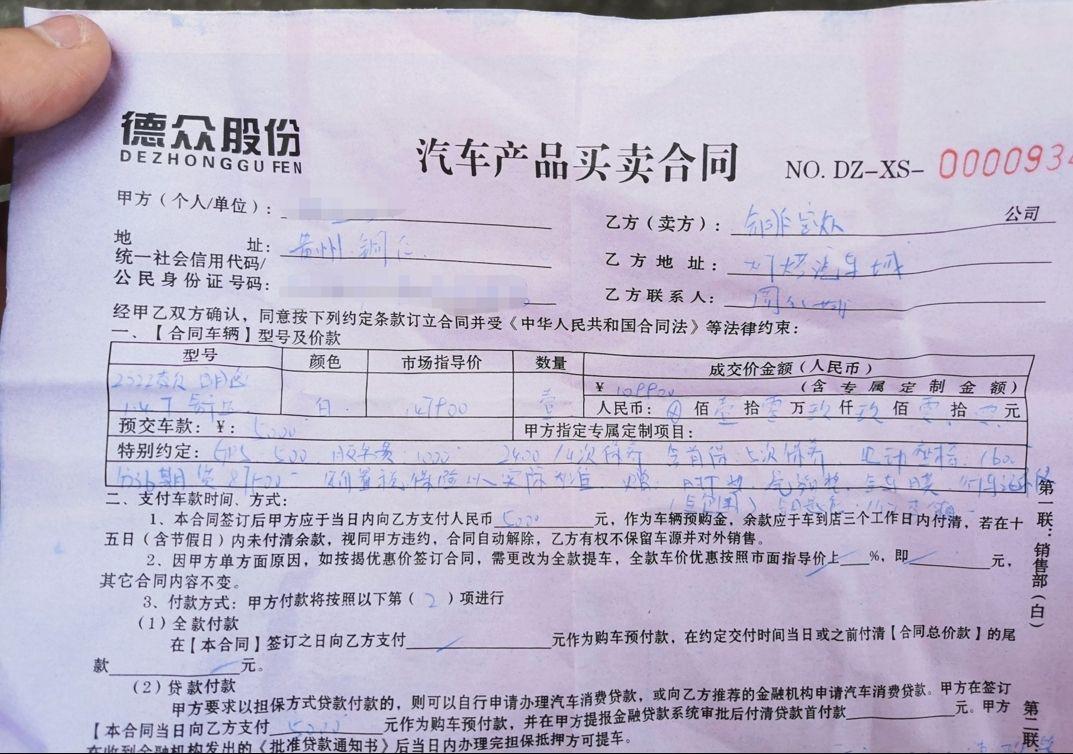 德众股份
DEZHONGGU FEN
汽车产品买卖合同
NO. DZ-XS-
000093
甲方（个人/单位）：
乙方（卖方）：
公司
地 址：贵州 铜仁
乙方地址：
汽车城
统一社会信用代码/
公民身份证号码：
乙方联系人：
经甲乙双方确认，同意按下列约定条款订立合同并受《中华人民共和国合同法》等法律约束：
一、【合同车辆】型号及价款
型号 颜色 市场指导价 数量 成交价金额（人民币）
2022款
白 147900 壹 ¥ 109900 （含专属定制金额）
人民币： 佰壹拾零万玖仟玖佰零拾零元
预交车款：¥：5000
甲方指定专属定制项目：
特别约定：GPS 500 2400/4次保养 含首保 5次保养
分36期 贷87500 购置税 保险以实际为准
二、支付车款时间、方式：
1、本合同签订后甲方应于当日内向乙方支付人民币5000元，作为车辆预购金，余款应于车到店三个工作日内付清，若在十
五日（含节假日）内未付清余款，视同甲方违约，合同自动解除，乙方有权不保留车源并对外销售。
2、因甲方单方面原因，如按揭优惠价签订合同，需更改为全款提车，全款车价优惠按照市面指导价上 %，即 元，
其它合同内容不变。
3、付款方式：甲方付款将按照以下第（2）项进行
（1）全款付款
在【本合同】签订之日向乙方支付 元作为购车预付款，在约定交付时间当日或之前付清【合同总价款】的尾
款 元。
（2）贷款付款
甲方要求以担保方式贷款付款的，则可以自行申请办理汽车消费贷款，或向乙方推荐的金融机构申请汽车消费贷款。甲方在签订
【本合同当日向乙方支付5000元作为购车预付款，并在甲方提报金融贷款系统审批后付清贷款首付款 元。甲方
在收到金融机构发出的《批准贷款通知书》后当日内办理完担保抵押方可提车。
第一联：销售部（白）
第二联